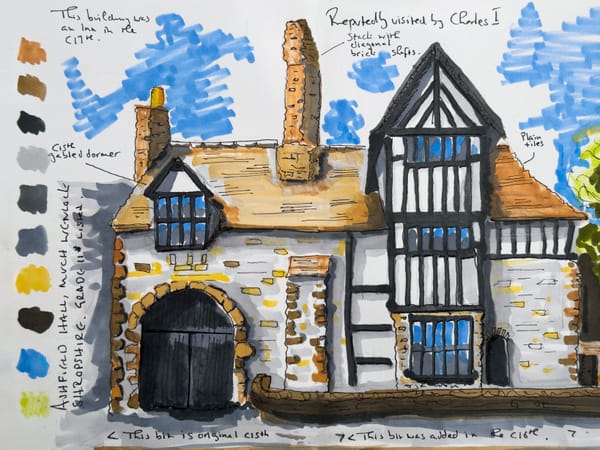 This building was
an Inn in the
C17th.
Reputedly visited by Charles I
Stack with
diagonal
brick shafts.
C15th
gabled dormer
Plain
tiles
ASHFIELD HALL, MUCH WENLOCK
SHROPSHIRE. GRADE II* LISTED
< This bit is original C15th
> < This bit was added in the C16th. >